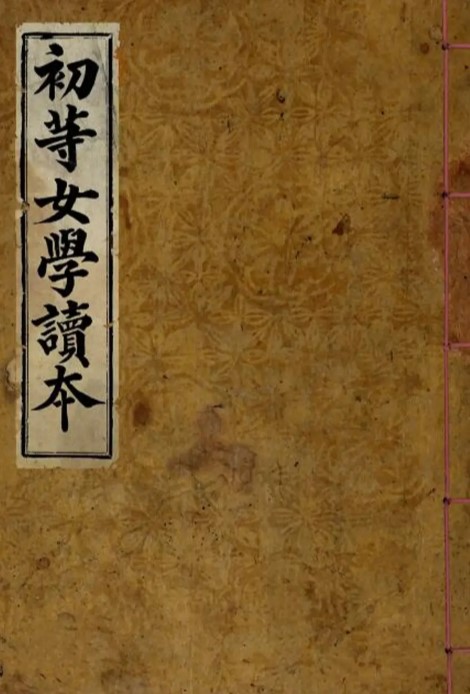 初等女學讀本